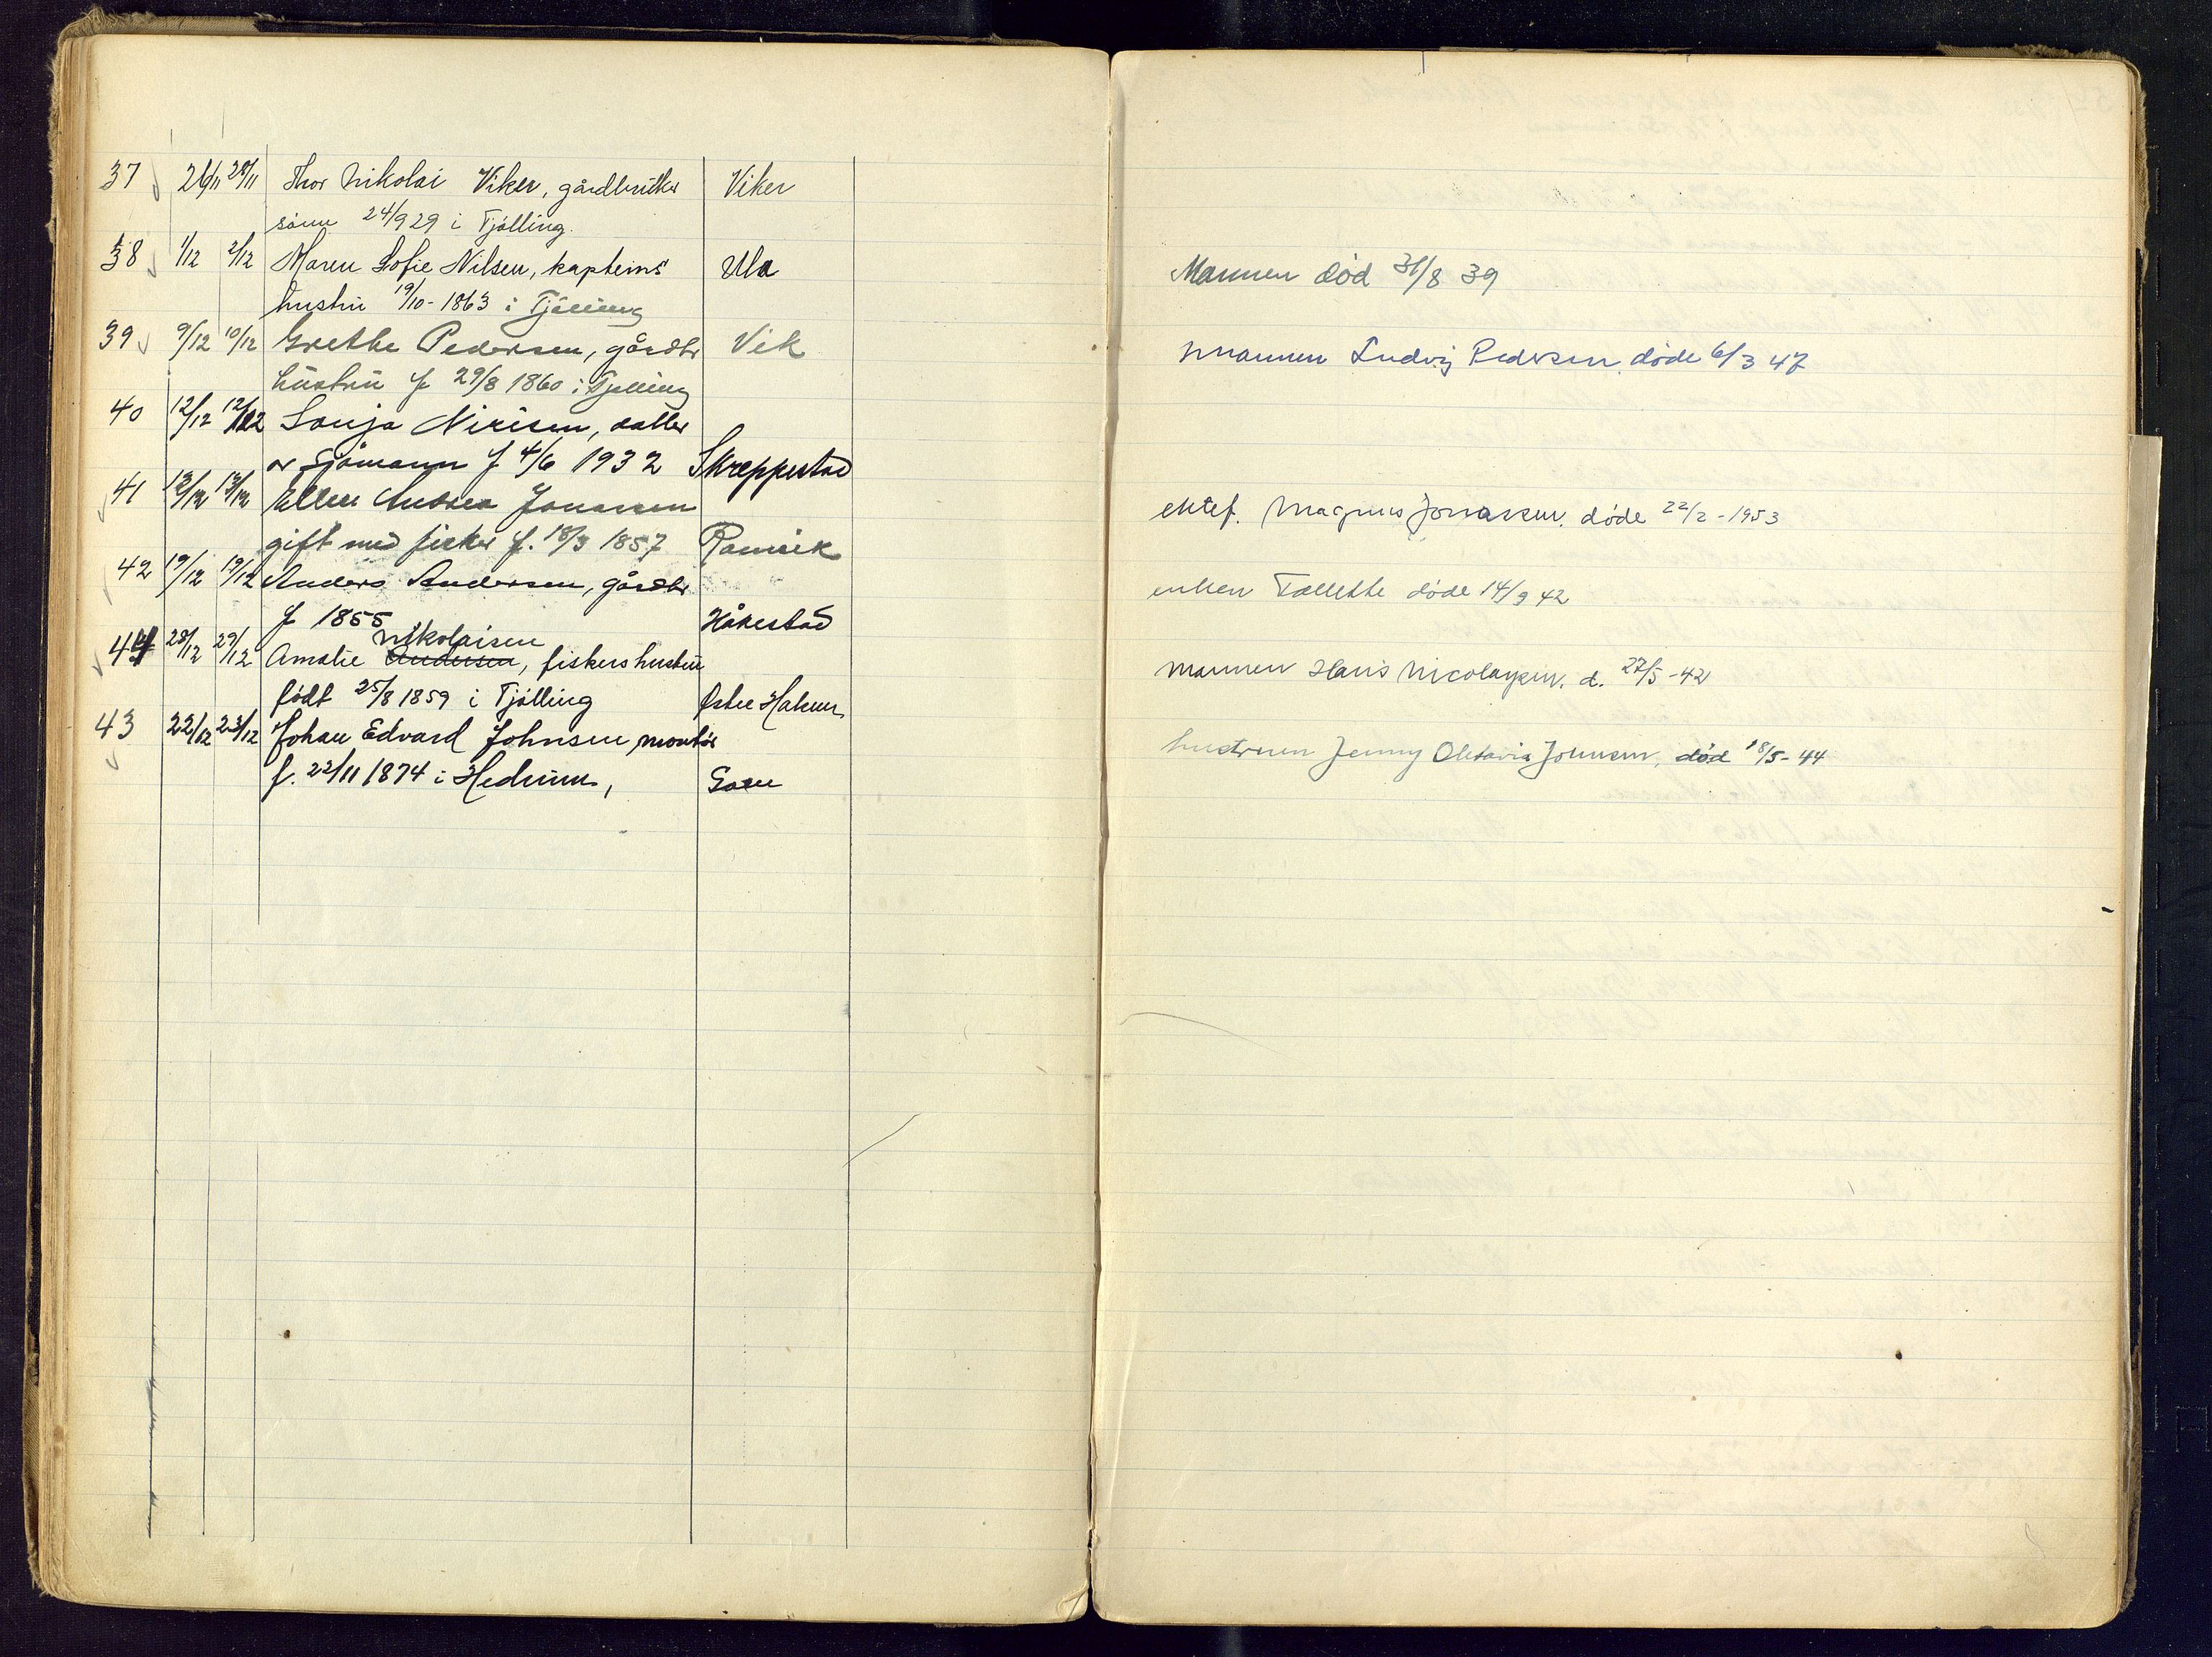 37 26/11 28/11 Thor Nikolai Viker, gårdbruker Viker
sønn 24/9 29 i Tjølling.
38 1/12 2/12 Maren Sofie Nilsen, kapteins Ula
hustru 19/10 - 1863 i Tjølling
Mannen død 31/8 39
39 9/12 10/12 Grethe Pedersen, gårdbr Vik
hustru f 29/8 1860 i Tjølling
Mannen Ludvig Pedersen døde 6/3 47
40 12/12 12/12 Sonja Nirisen, datter
av sjømann f 4/6 1932 Skreppestad
41 13/12 13/12 Ellen Andrea Jonassen
gift med fisker f. 18/3 1857 Ramvik
ektef. Magnus Jonassen. døde 22/2 - 1953
42 19/12 19/12 Anders Andersen, gårdbr
f 1855 Håkestad
enken Tollette døde 14/9 42
44 28/12 29/12 Amalie Andersen Nikolaisen, fiskers hustru
født 25/8 1859 i Tjølling Østre Halsen
mannen Hans Nicolaysen. d. 27/5 - 42
43 22/12 23/12 Johan Edvard Johnsen, montør
f. 22/11 1874 i Hedrum,
hustruen Jenny Oktavia Johnsen, død 18/5 - 44